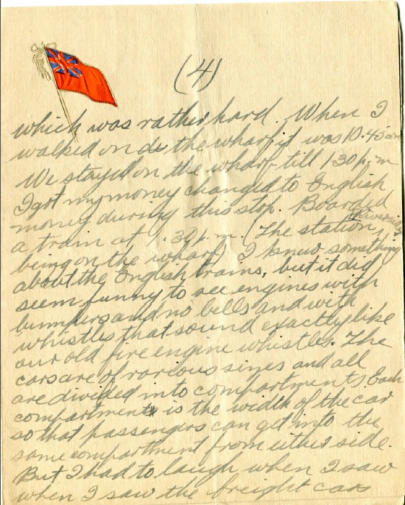 (4)
which was rather hard. When I
walked on to the wharf it was 10.45 am
We stayed on the wharf till 1.30 p.m
I got my money changed to English
money during this stop. Boarded
a train at 1.30 p.m. (The station,
being on the wharf) I knew something
about the English trains, but it did
seem funny to see engines with
bumpers and no bells and with
whistles that sound exactly like
our old fire engine whistle. The
cars are of various sizes and all
are divided into compartments. Each
compartment is the width of the car
so that passengers can get into the
same compartment from either side.
But I had to laugh when I saw
when I saw the freight cars